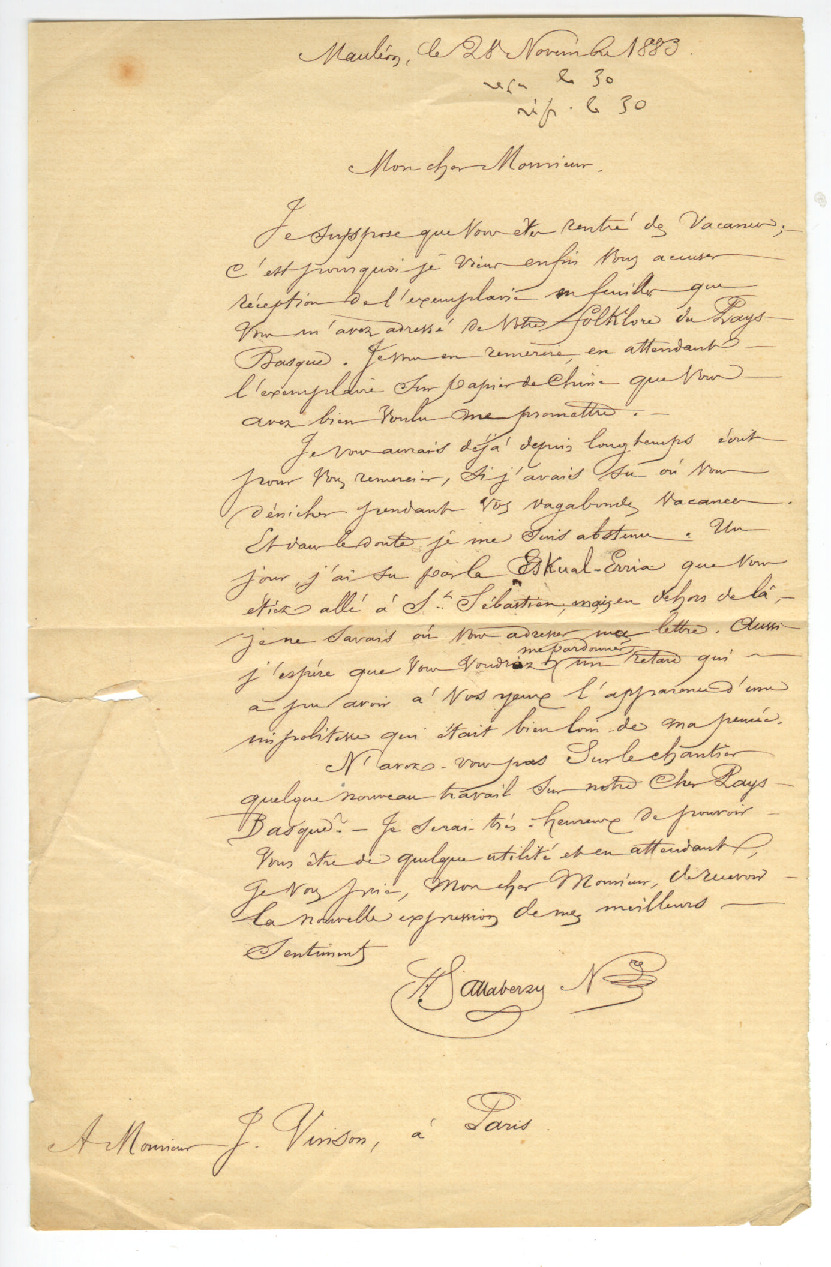 Mauléon, le 28 Novembre 1883.
reçu le 30
rép. le 30
Mon cher Monsieur.
Je suppose que Vous êtes rentré des Vacances;
C'est pourquoi je Viens enfin Vous accuser
réception de l'exemplaire en feuilles que
Vous m'avez adressé de Votre folklore du Pays
Basque. Je vous en remercie, en attendant
l'exemplaire sur papier de Chine que Vous
avez bien Voulu me promettre. —
Je vous aurais déjà depuis longtemps écrit
pour Vous remercier, si j'avais su où Vous
dénicher pendant Vos vagabondes Vacances.
Et dans le doute je me suis abstenu. Un
jour, j'ai su par le Eskual-Erria que Vous
étiez allé à St. Sébastien, mais en dehors de là,
je ne savais où Vous adresser ma lettre. Aussi
j'espère que Vous Voudrez me pardonner un retard qui —
a pu avoir à Vos yeux l'apparence d'une
impolitesse qui était bien loin de ma pensée.
N'avez-vous pas Sur le chantier
quelque nouveau travail sur notre Cher Pays-
Basque? — Je serai très-heureux de pouvoir
Vous être de quelque utilité et en attendant,
Je Vous prie, Mon cher Monsieur, de recevoir
la nouvelle expression de mes meilleurs —
Sentiments
Sallaberry Nre
A Monsieur J. Vinson, à Paris.